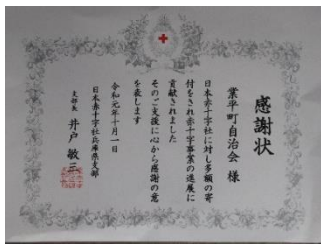 感謝状
業平町自治会 様
日本赤十字社に対し多額の寄
付をされ赤十字事業の進展に
貢献されました
そのご支援に心から感謝の意
を表します
令和元年十月一日
日本赤十字社兵庫県支部
支部長 井戸 敏三